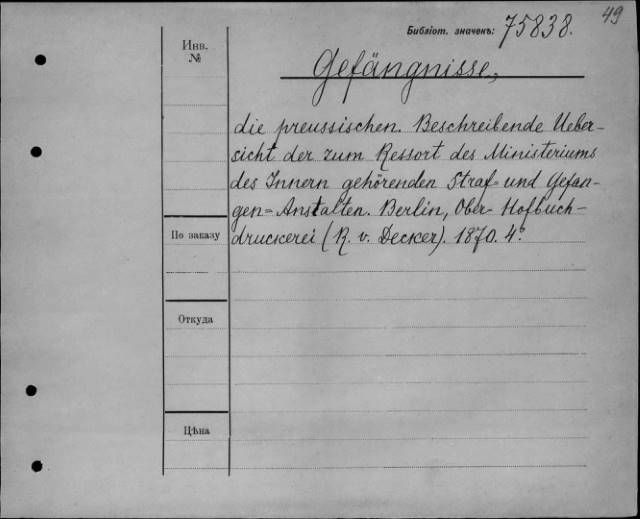 49
Библіот. значекъ: 75838.
Инв.
№
Gefängnisse,
die preussischen. Beschreibende Ueber-
sicht der zum Ressort des Ministeriums
des Innern gehörenden Straf= und Gefan-
gen=Anstalten. Berlin, Ober-Hofbuch-
druckerei (R. v. Decker). 1870. 4°.
По заказу
Откуда
Цѣна